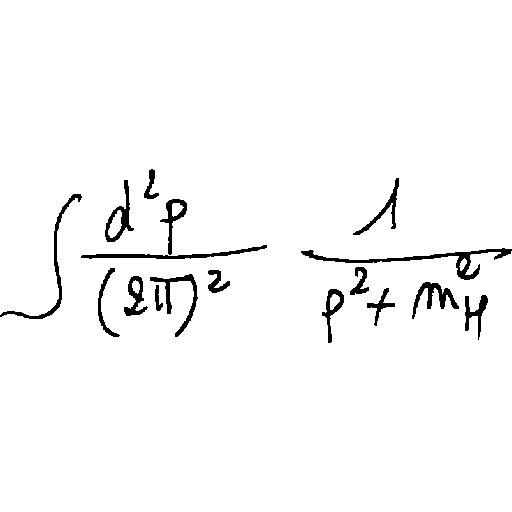 \int \frac{d^2 p}{(2\pi)^2} \frac{1}{p^2 + m_H^2}